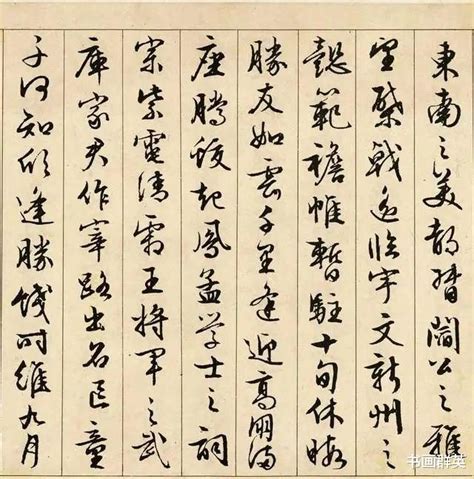 東南之美都督閻公之雅
望棨戟遙臨宇文新州之
懿範襜帷暫駐十旬休暇
勝友如雲千里逢迎高朋滿
座騰蛟起鳳孟学士之詞
宗紫電清霜王將軍之武
庫家君作宰路出名區童
子何知躬逢勝餞时維九月
书画群英